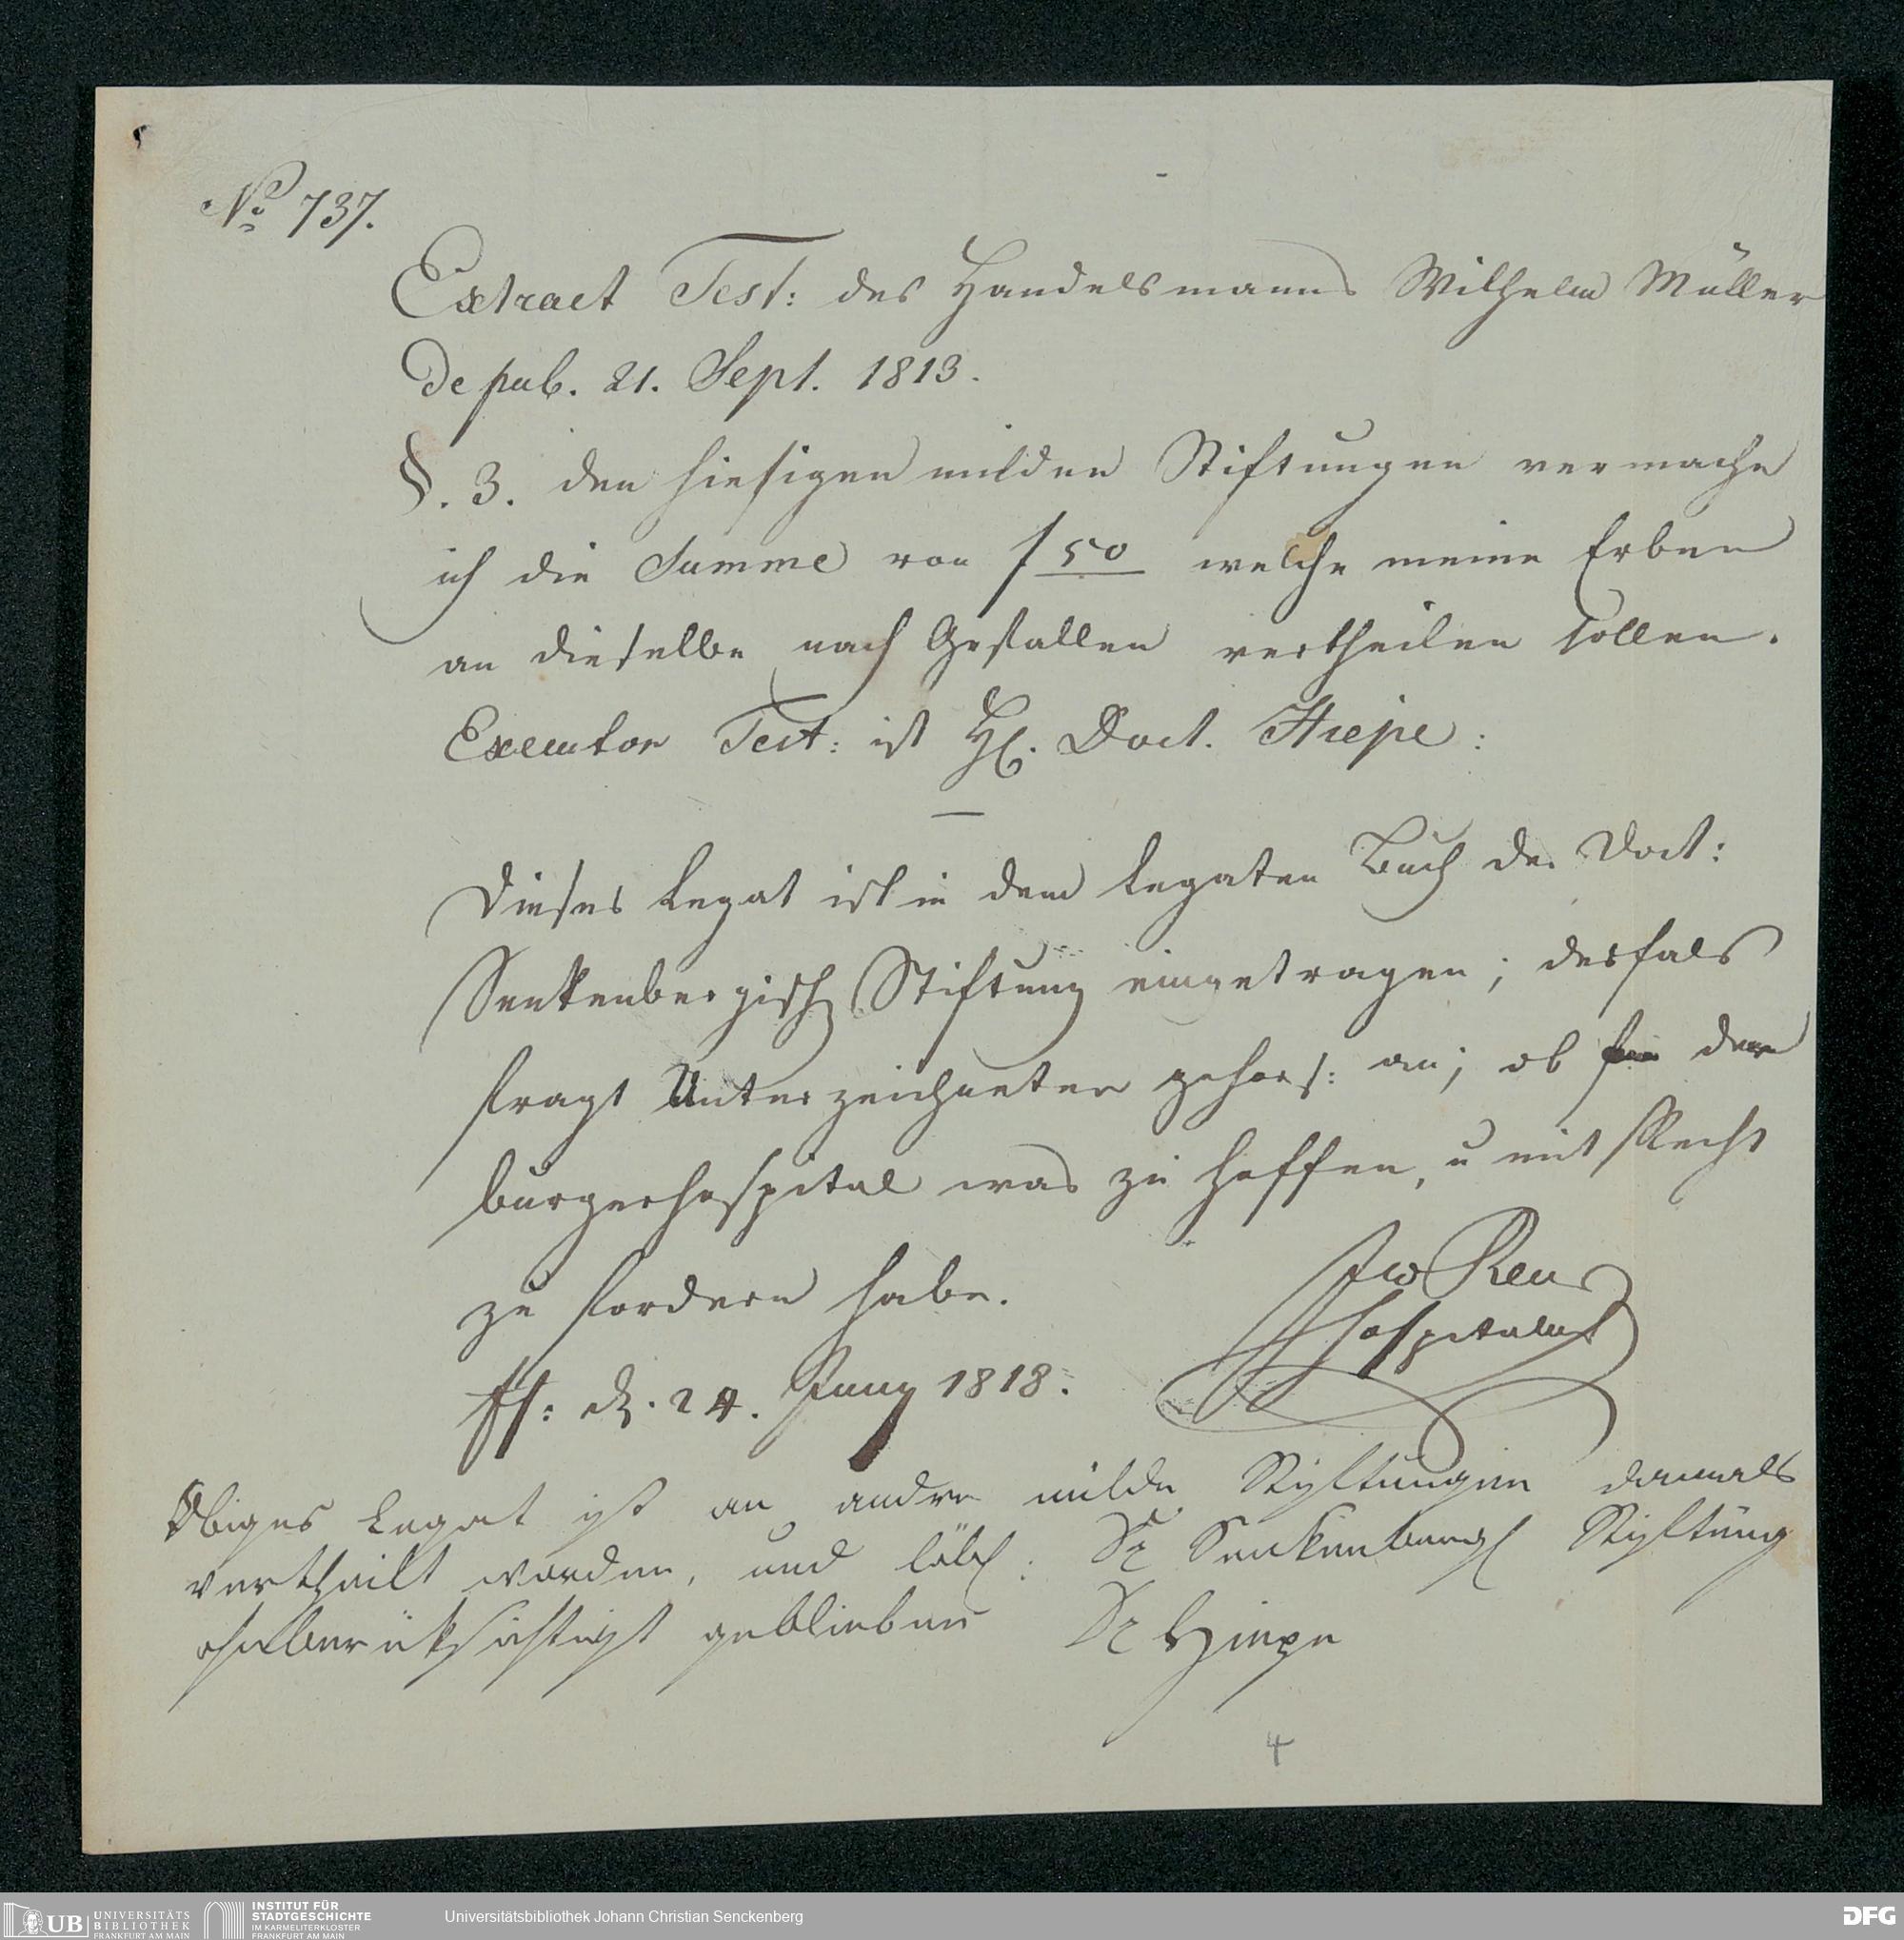 No 737.
Extract Test: des Handelsmanns Wilhelm Müller
de pub. 21. Sept. 1813.
§. 3. den hiesigen milden Stiftungen vermache
ich die Summe von f 50 welche meine Erben
an dieselbe nach Gefallen vertheilen sollen.
Executor Test: ist H. Doct. Hiepe:
Dieses Legat ist in dem Legaten Buch der Doct:
Senkenbergisch Stiftung eingetragen; desfals
fragt Unterzeichneter gehors: an; ob der
burgerhospital was zu hoffen, u mit Recht
zu fordern habe.
Reus
Hospitalmst
ff: d. 24. Juny 1818.
Obiges Legat ist an andre milde Stiftungen damals
vertheilt worden, und löbl: Dr Senkenbergl Stiftung
geblieben Dr Hiepe
4
UB UNIVERSITÄTS
BIBLIOTHEK
FRANKFURT AM MAIN
INSTITUT FÜR
STADTGESCHICHTE
IM KARMELITERKLOSTER
FRANKFURT AM MAIN
Universitätsbibliothek Johann Christian Senckenberg
DFG